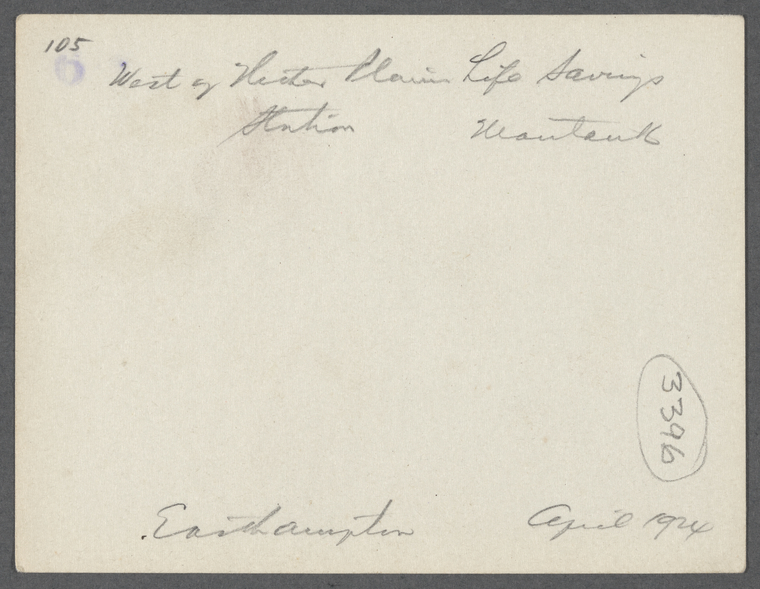 105
West of Hither Plains Life Savings
Station Montauk
3396
Easthampton April 1924